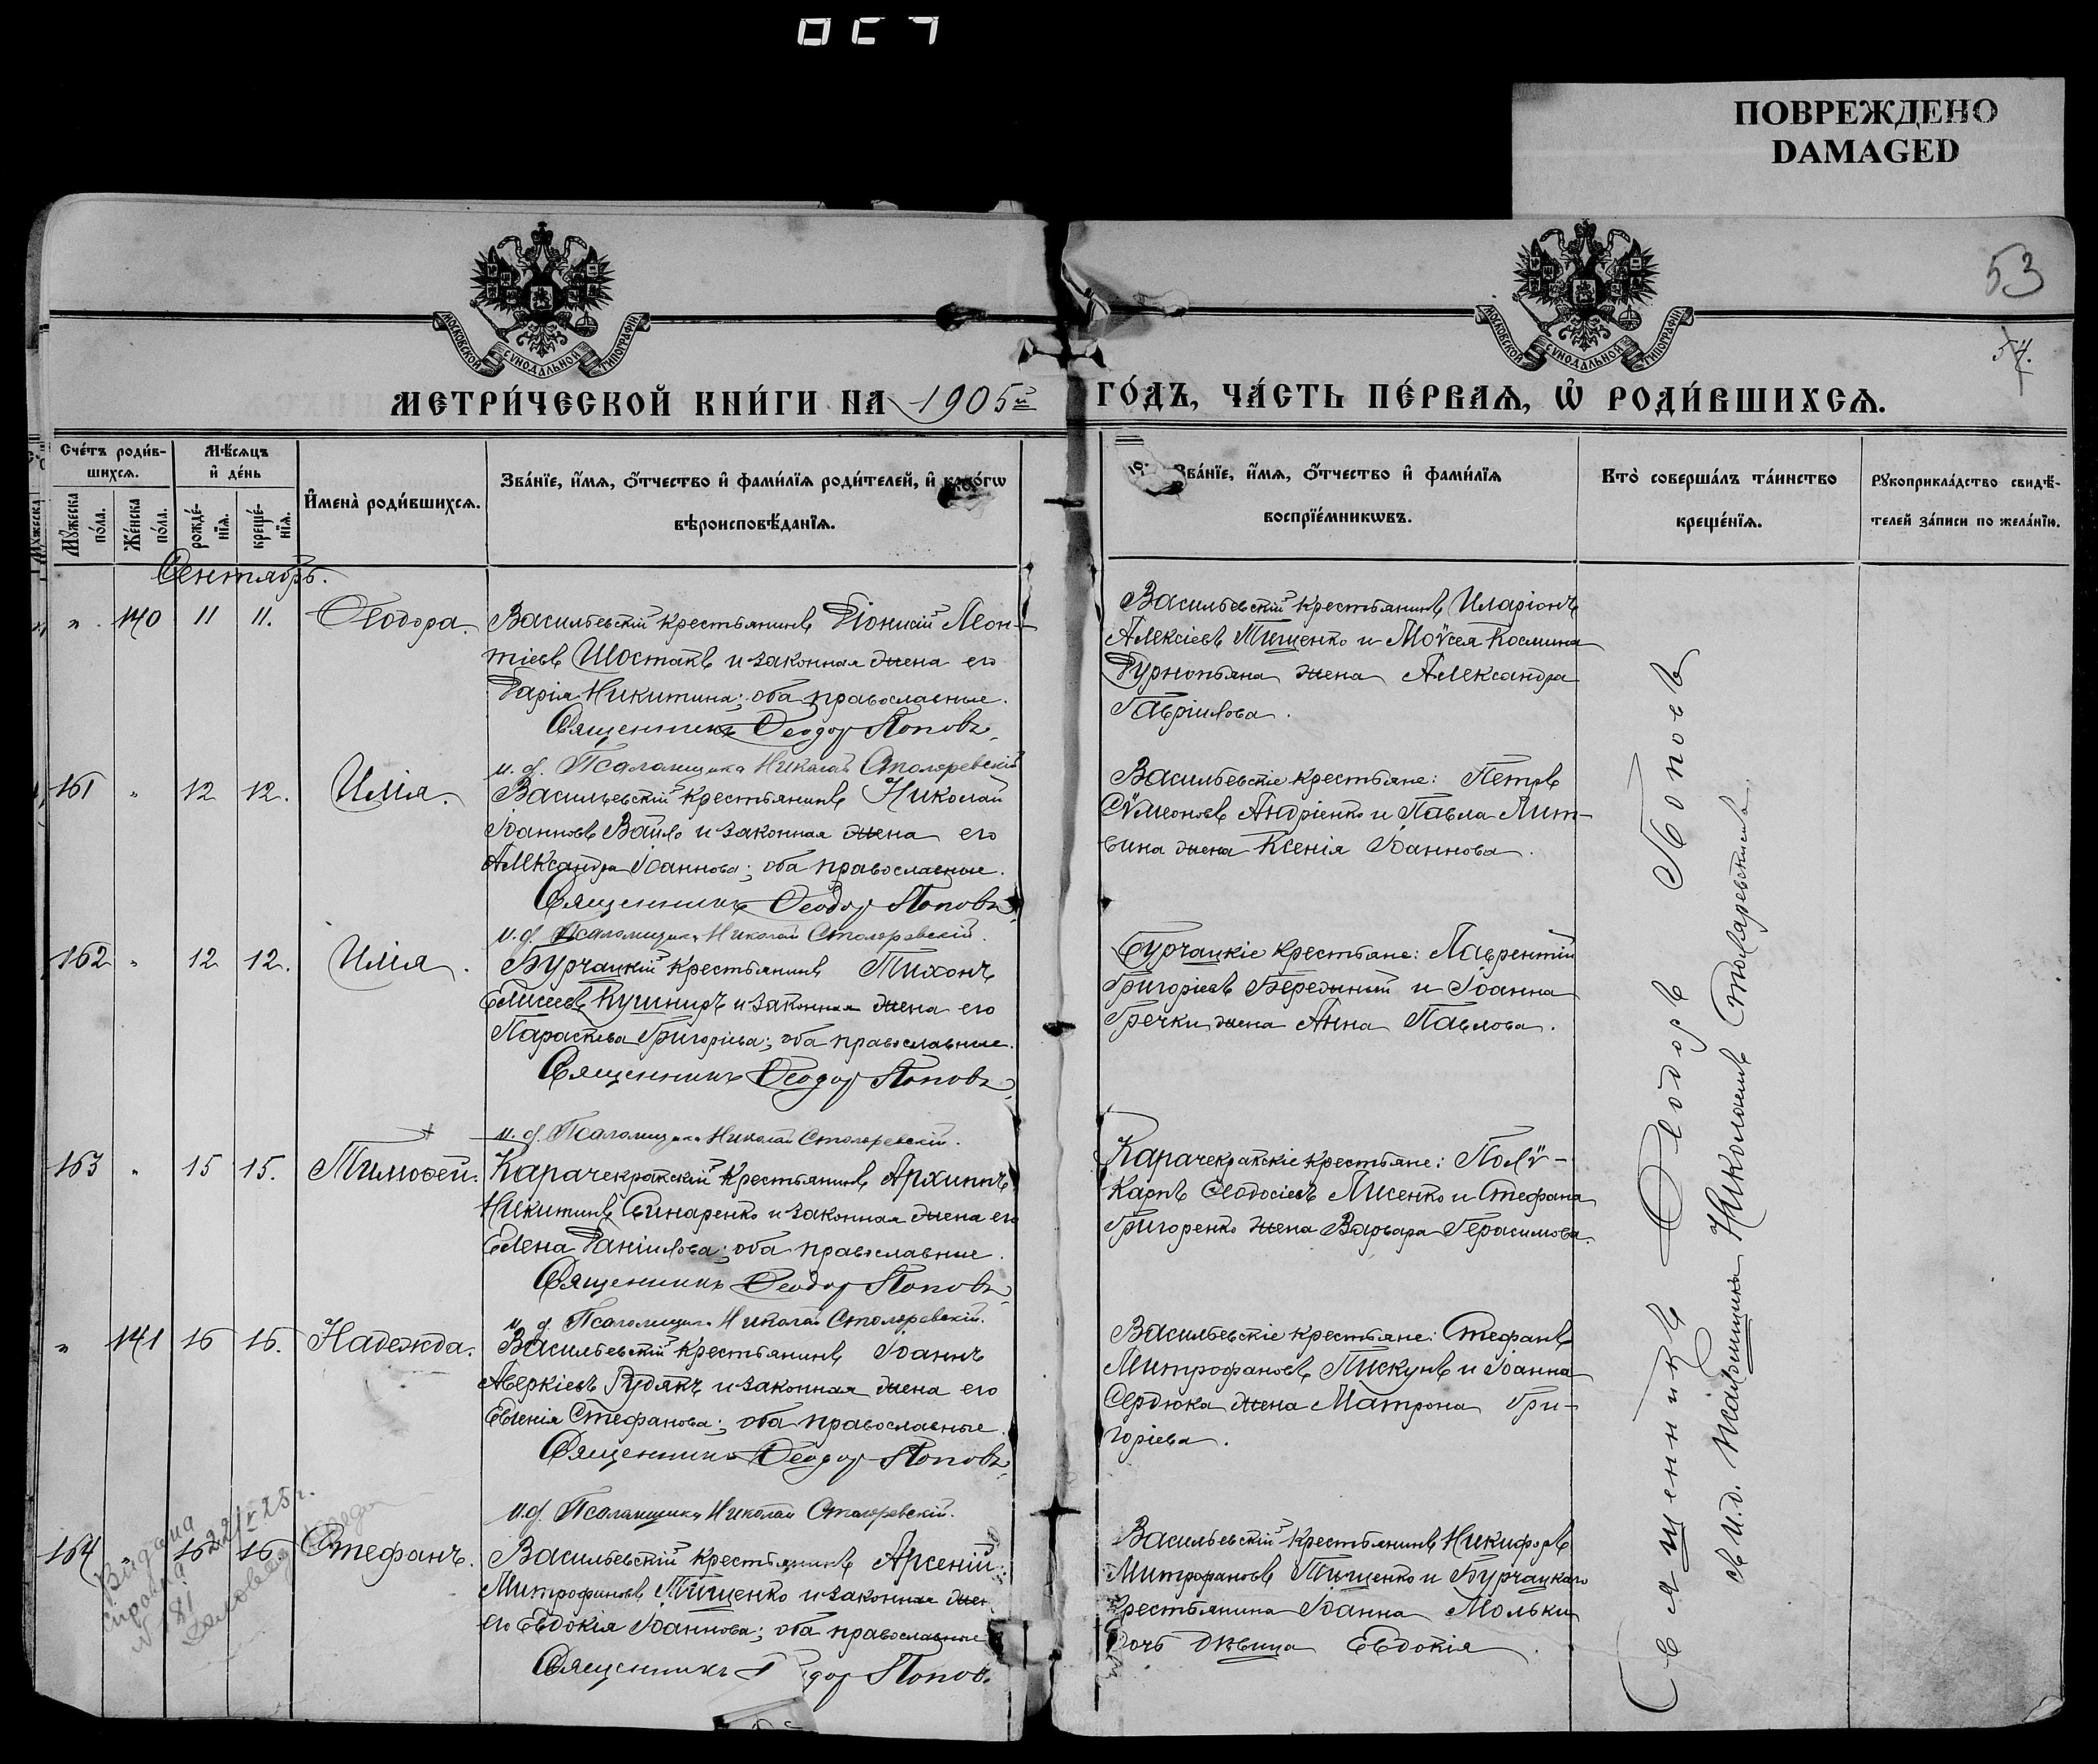 ПОВРЕЖДЕНО
DAMAGED
53
54.
МОСКОВСКОЙ СѴНОДАЛЬНОЙ ТИПОГРАФІИ
МОСКОВСКОЙ СѴНОДАЛЬНОЙ ТИПОГРАФІИ
МЕТРИ́ЧЕСКОЙ КНИ́ГИ НА 1905й ГО́ДЪ, ЧА́СТЬ ПЕ́РВАЯ, Ѡ҆ РОДИ́ВШИХСѦ.
Сче́тъ роди́в-
шихсѧ.
Мѣ́сѧцъ
и҆ де́нь
Мꙋ́жеска
по́ла.
Же́нска
по́ла.
рожде́-
нїѧ.
креще́-
нїѧ.
И҆мена̀ роди́вшихсѧ.
Зва́нїе, и҆́мѧ, ѻ҆́тчество и҆ фами́лїѧ роди́телей, и҆ како́гѡ
вѣроисповѣ́данїѧ.
Зва́нїе, и҆́мѧ, ѻ҆́тчество и҆ фами́лїѧ
воспрїе́мникѡвъ.
Кто̀ соверша́лъ та́инство
креще́нїѧ.
Рꙋкоприкла́дство свидѣ́-
телей за́писи по жела́нїю.
Сентябрь.
" 140 11 11. Ѳеодора.
Васильевскій крестьянинъ Діонисій Леон-
тіевъ Шостакъ и законная жена его
Дарія Никитина; оба православные.
Священникъ Ѳеодор Поповъ.
и. д. Псаломщика Николай Столяревскій
Васильевскій крестьянинъ Иларіонъ
Алексіевъ Тищенко и Моѵсея Космина
Дурнопьяна жена Александра
Гавріилова.
161 " 12 12. Илія.
Васильевскій крестьянинъ Николай
Іоанновъ Вайло и законная жена его
Александра Іоаннова; оба православные.
Священникъ Ѳеодор Поповъ
и. д. Псаломщика Николай Столяревскій.
Васильевскіе крестьяне: Петръ
Сѵмеоновъ Андріенко и Павла Лит-
вина жена Ксенія Іоаннова.
162 " 12 12. Илія.
Бурчацкій крестьянинъ Тихонъ
Елисеевъ Кушниръ и законная жена его
Параскева Григоріева; оба православные.
Священникъ Ѳеодор Поповъ
и. д. Псаломщика Николай Столяревскій.
Бурчацкіе крестьяне: Лаврентій
Григоріевъ Бережный и Іоанна
Гречки жена Анна Павлова.
163 " 15 15. Тимоѳей.
Карачекракскій крестьянинъ Архиппъ
Никитинъ Свинаренко и законная жена его
Елена Даніилова; оба православные.
Священникъ Ѳеодор Поповъ
и. д. Псаломщика Николай Столяревскій.
Карачекракскіе крестьяне: Полѵ-
карпъ Ѳеодосіевъ Лисенко и Стефана
Григоренко жена Варвара Герасимова.
" 141 16 16. Надежда.
Васильевскій крестьянинъ Іоаннъ
Аверкіевъ Рудякъ и законная жена его
Евгенія Стефанова; оба православные.
Священникъ Ѳеодор Поповъ
и. д. Псаломщика Николай Столяревскій.
Васильевскіе крестьяне: Стефанъ
Митрофановъ Пискунъ и Іоанна
Сердюка жена Матрона Гри-
горіева.
164 " 16 16 Стефанъ.
Васильевскій крестьянинъ Арсеній
Митрофановъ Тищенко и законная жен
его Евдокія Іоаннова; оба православные
Священникъ Поповъ.
Васильевскій крестьянинъ Никифоръ
Митрофановъ Тищенко и Бурчацкаго
крестьянина Іоанна Мольки
дочь дѣвица Евдокія.
Священникъ Ѳеодоръ Поповъ
съ и. д. псаломщика Николаемъ Столяревскимъ.